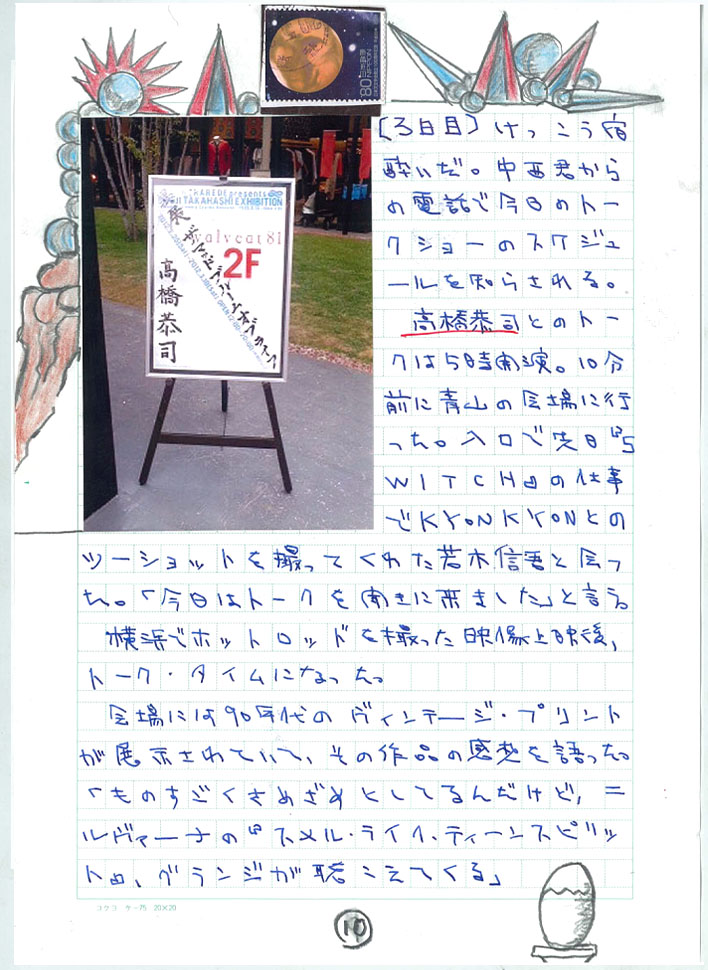 80
NIPPON
KAREDE presents
JI TAKAHASHI EXHIBITION
valveat 81
2F
高橋恭司
[3日目]けっこう宿
酔いだ。中西君から
の電話で今日のトー
クショーのスケジュ
ールを知らされる。
高橋恭司とのトー
クは5時開演。10分
前に青山の会場に行
った。入口で先日『S
WITCH』の仕事
でKYONKYONとの
ツーショットを撮ってくれた若木信吾と会っ
た。「今日はトークを聞きに来ました」と言う。
横浜でホットロッドを撮った映像上映後、
トーク・タイムになった。
会場には90年代のヴィンテージ・プリント
が展示されていて、その作品の感想を語った。
「ものすごくさめざめとしてるんだけど、ニ
ルヴァーナの『スメル・ライク・ティーンスピリッ
ト』、グランジが聴こえてくる」
コクヨ ケー75 20×20
10